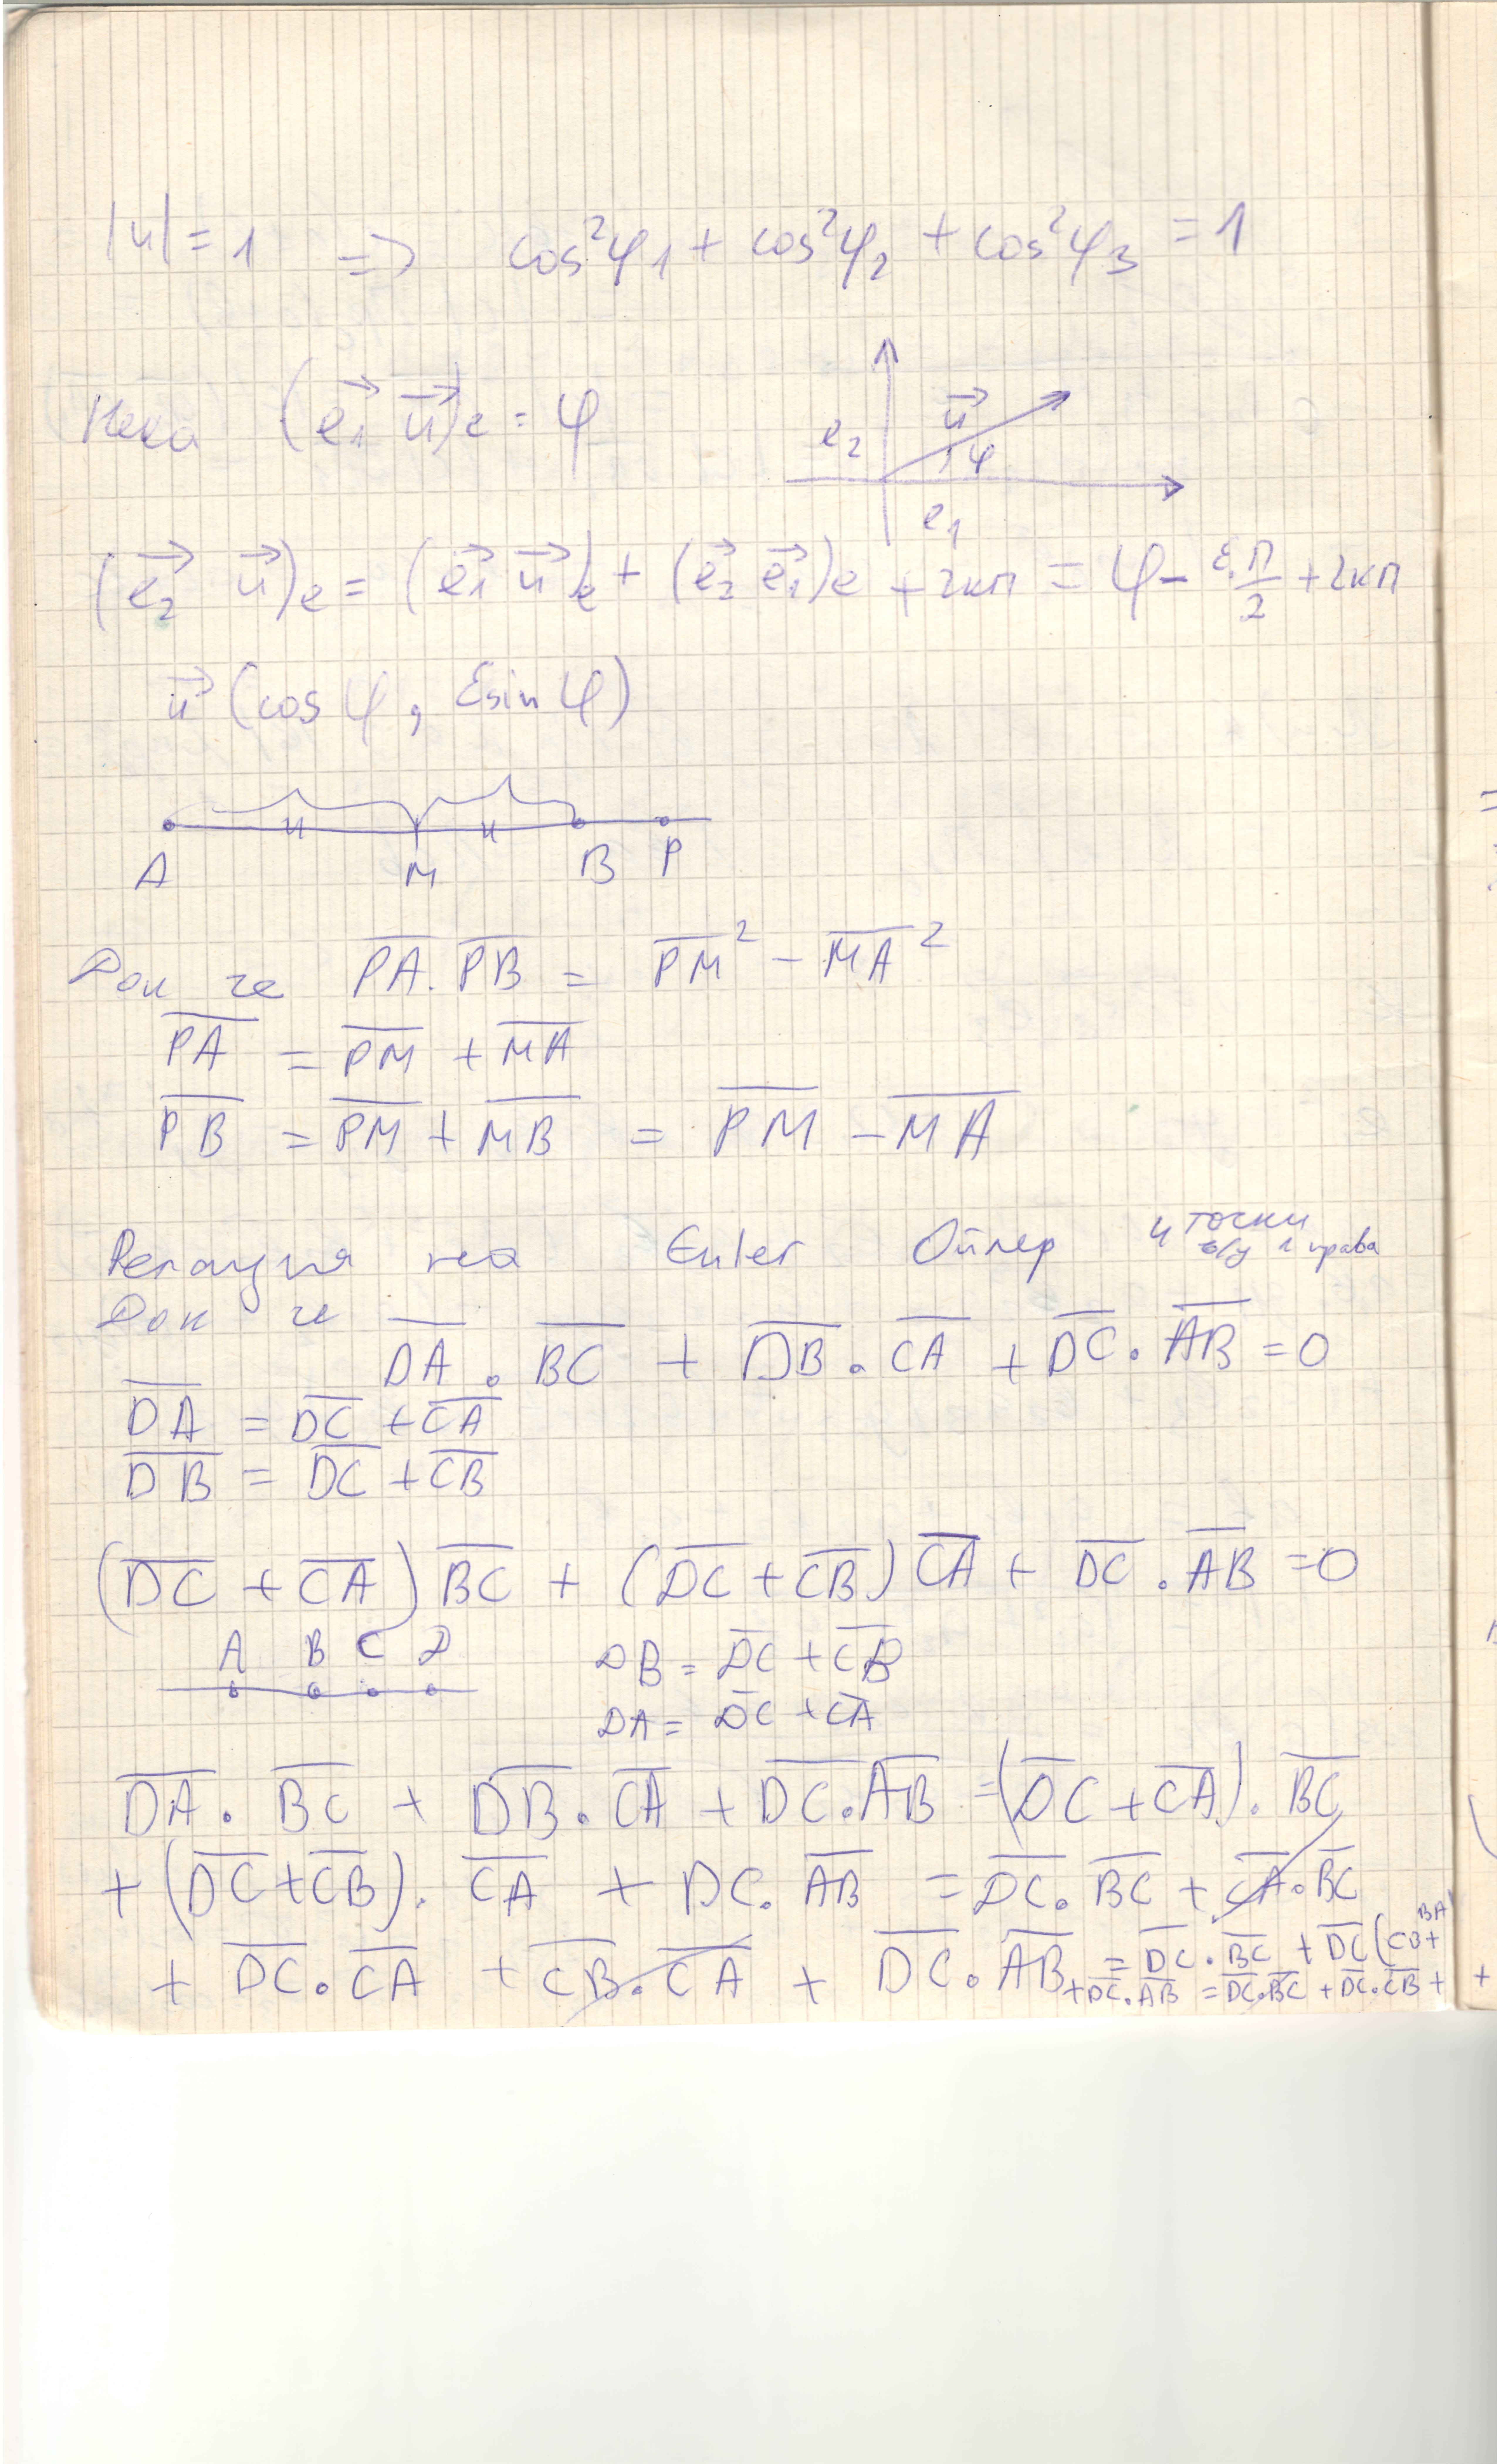 |u| = 1 => cos²φ₁ + cos²φ₂ + cos²φ₃ = 1
Нека (e₁→ u→)e = φ
e₂ u→ φ e₁
(e₂→ u→)e = (e₁→ u→)e + (e₂→ e₁→)e + 2кп = φ - ε.п/2 + 2кп
u→ (cos φ, εsin φ)
A M B P
Док че P̅A̅ . P̅B̅ = P̅M̅² - M̅A̅²
P̅A̅ = P̅M̅ + M̅A̅
P̅B̅ = P̅M̅ + M̅B̅ = P̅M̅ - M̅A̅
Релация на Euler Ойлер 4 точки в/у 1 права
Док че D̅A̅ . B̅C̅ + D̅B̅ . C̅A̅ + D̅C̅ . A̅B̅ = 0
D̅A̅ = D̅C̅ + C̅A̅
D̅B̅ = D̅C̅ + C̅B̅
(D̅C̅ + C̅A̅) B̅C̅ + (D̅C̅ + C̅B̅) C̅A̅ + D̅C̅ . A̅B̅ = 0
A B C D
DB = D̅C̅ + C̅B̅
DA = D̅C̅ + C̅A̅
D̅A̅ . B̅C̅ + D̅B̅ . C̅A̅ + D̅C̅ . A̅B̅ = (D̅C̅ + C̅A̅) . B̅C̅
+ (D̅C̅ + C̅B̅) . C̅A̅ + DC . A̅B̅ = D̅C̅ . B̅C̅ + C̅A̅ . B̅C̅
+ D̅C̅ . C̅A̅ + C̅B̅ . C̅A̅ + D̅C̅ . A̅B̅ = D̅C̅ . B̅C̅ + D̅C̅ (CB + BA)
+ D̅C̅ . A̅B̅ = D̅C̅ . B̅C̅ + D̅C̅ . C̅B̅ +